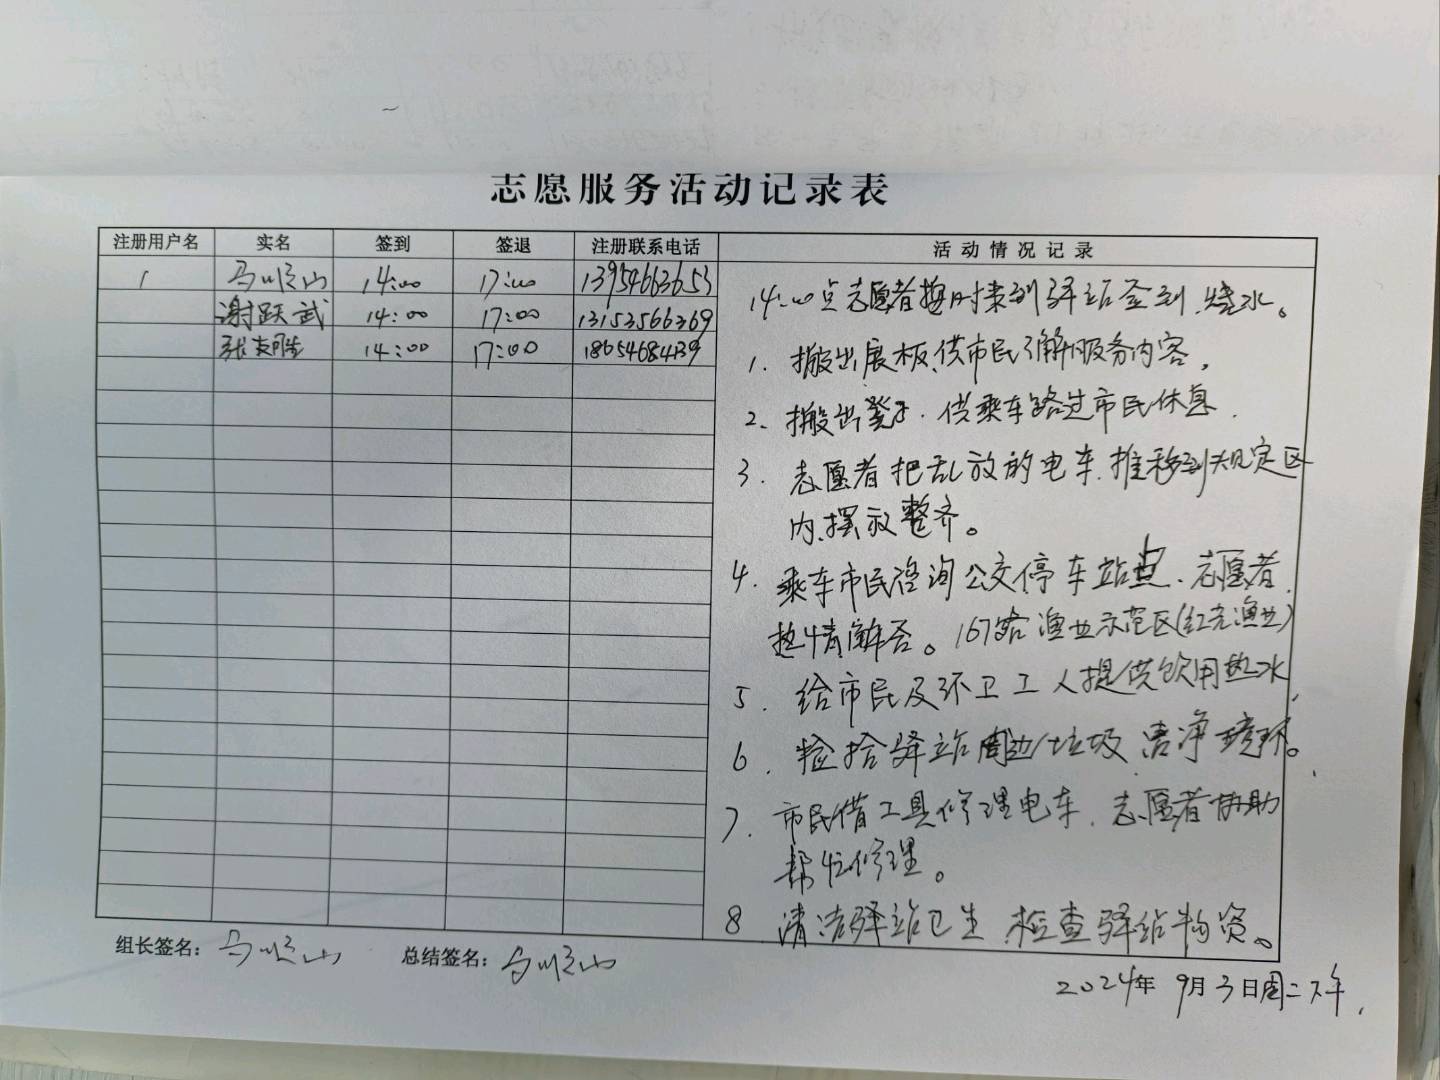 志愿服务活动记录表
注册用户名 实名 签到 签退 注册联系电话 活动情况记录
1 马顺山 14:00 17:00 13954663653
谢跃武 14:00 17:00 13153566369
张 14:00 17:00 18654684139
14:00点志愿者按时来到驿站签到,烧水。
1. 搬出展板,供市民了解服务内容。
2. 搬出凳子.供乘车路过市民休息.
3. 志愿者把乱放的电车.推移到规定区
内.摆放整齐。
4. 乘车市民咨询公交停车站点.志愿者
热情解答。167路渔业示范区(红光渔业)
5. 给市民及环卫工人提供饮用热水.
6. 捡拾驿站周边垃圾.洁净环境。
7. 市民借工具修理电车.志愿者协助
帮忙修理。
8 清洁驿站卫生.检查驿站物资。
组长签名:马顺山 总结签名:马顺山
2024年9月3日周二下午.